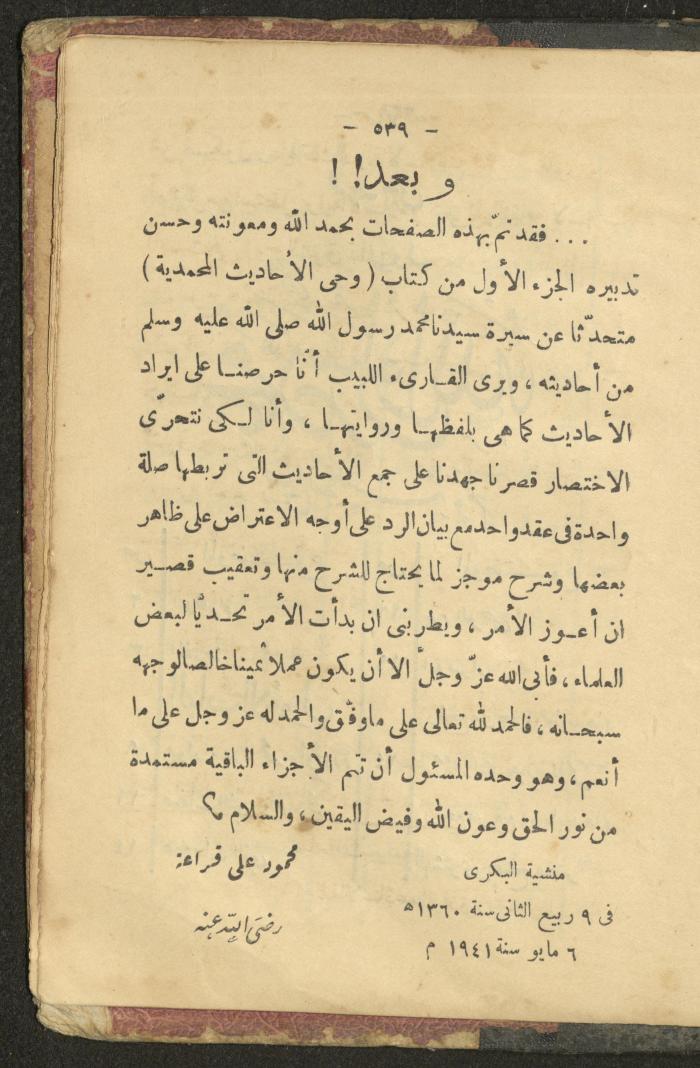 — ٥٣٩ —
وبعد!!
... فقد تمّ بهذه الصفحات بحمد الله ومعونته وحسن
تدبيره الجزء الأول من كتاب (وحى الأحاديث المحمدية)
متحدّثا عن سيرة سيدنا محمد رسول الله صلى الله عليه وسلم
من أحاديثه، ويرى القارىء اللبيب أنّا حرصنا على ايراد
الأحاديث كما هى بلفظها وروايتها، وأنا لكى نتحرّى
الاختصار قصرنا جهدنا على جمع الأحاديث التى تربطها صلة
واحدة فى عقد واحد مع بيان الرد على أوجه الاعتراض على ظاهر
بعضها وشرح موجز لما يحتاج للشرح منها وتعقيب قصير
ان أعوز الأمر، ويطربنى ان بدأت الأمر تحديًا لبعض
العلماء، فأبى الله عزّ وجلّ الا أن يكون عملا ثمينا خالصا لوجهه
سبحانه، فالحمد لله تعالى على ما وفّق والحمد له عز وجل على ما
أنعم، وهو وحده المسئول أن تتم الأجزاء الباقية مستمدة
من نور الحق وعون الله وفيض اليقين، والسلام ؟
محمود على قراعة
منشية البكرى
فى ٩ ربيع الثانى سنة ١٣٦٠ ه
رضى الله عنه
٦ مايو سنة ١٩٤١ م